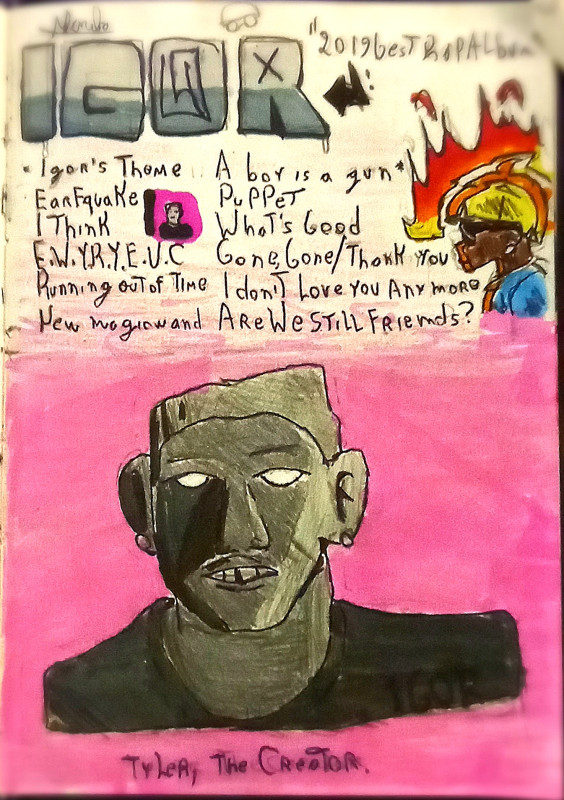 IGOR
"2019 best RapAlbum
Igor's Theme
EarFquaKe
I Think
E.W.Y.R.Y.E.U.C
Running out of Time
New magicwand
A boy is a gun*
PuPPeT
What's Good
Gone, Gone/Thank You
I don't Love You Any more
Are We STill Friends?
IGOR
Tyler, The Creator.